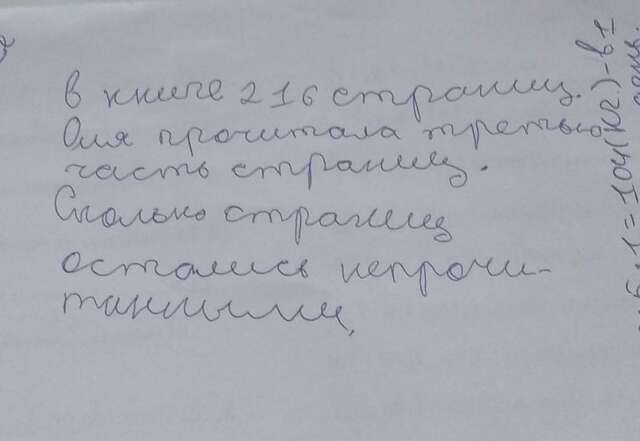 В книге 216 страниц.
Оля прочитала третью
часть страниц.
Сколько страниц
остались непрочи-
танными,
= 104(кг) - в 1